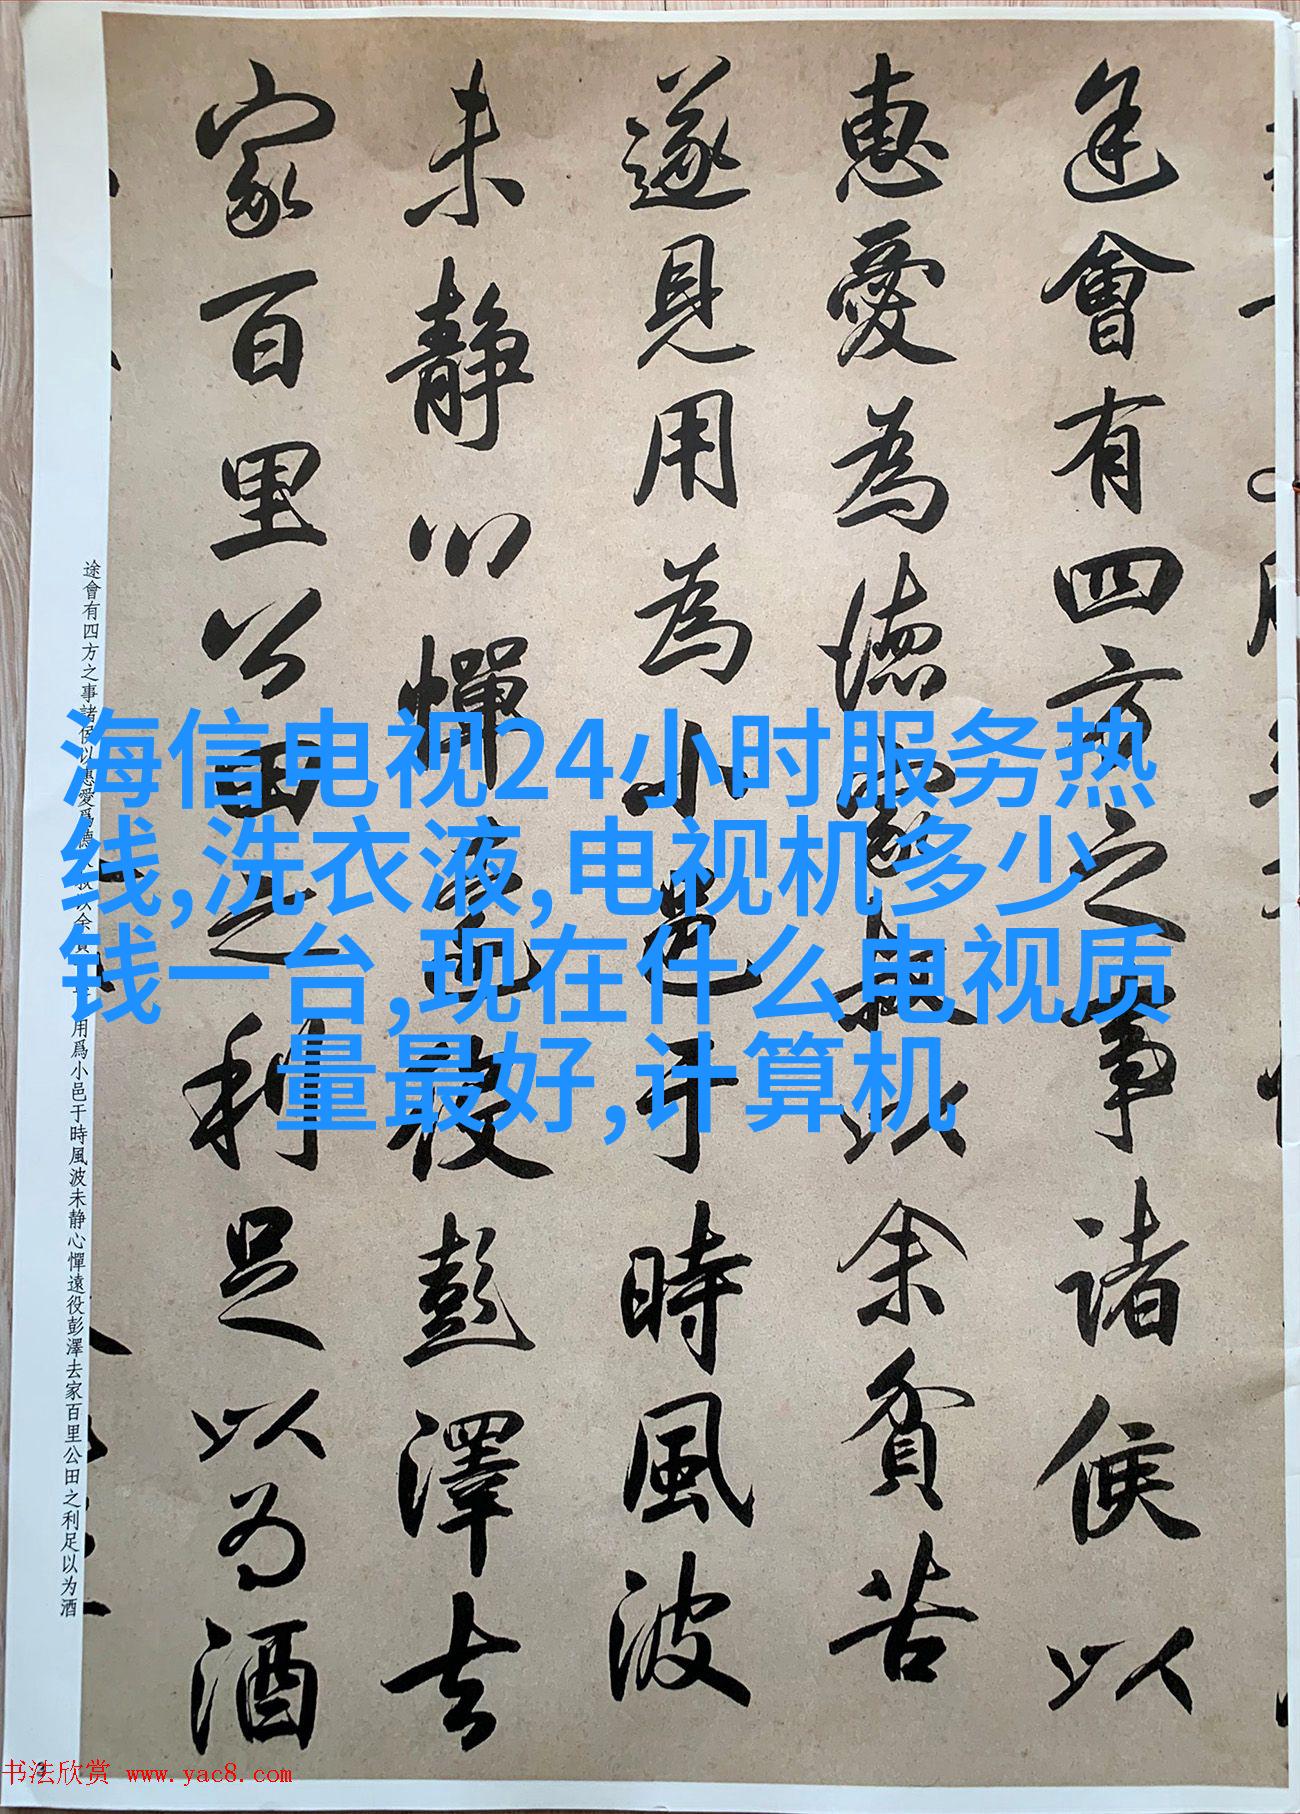 途會有四方之事諸侯以
惠愛為德家叔以余貧苦
遂見用為小邑于時風波
未静心憚遠役彭澤去
家百里公田之利足以为酒
海信电视24小时服务热
线,洗衣液,电视机多少
钱一台,现在什么电视质
量最好,计算机
途會有四方之事諸侯以惠愛爲德 叔以余 用爲小邑于時風波未静心憚遠役彭澤去家百里公田之利足以为酒
书法欣赏 www.yac8.com